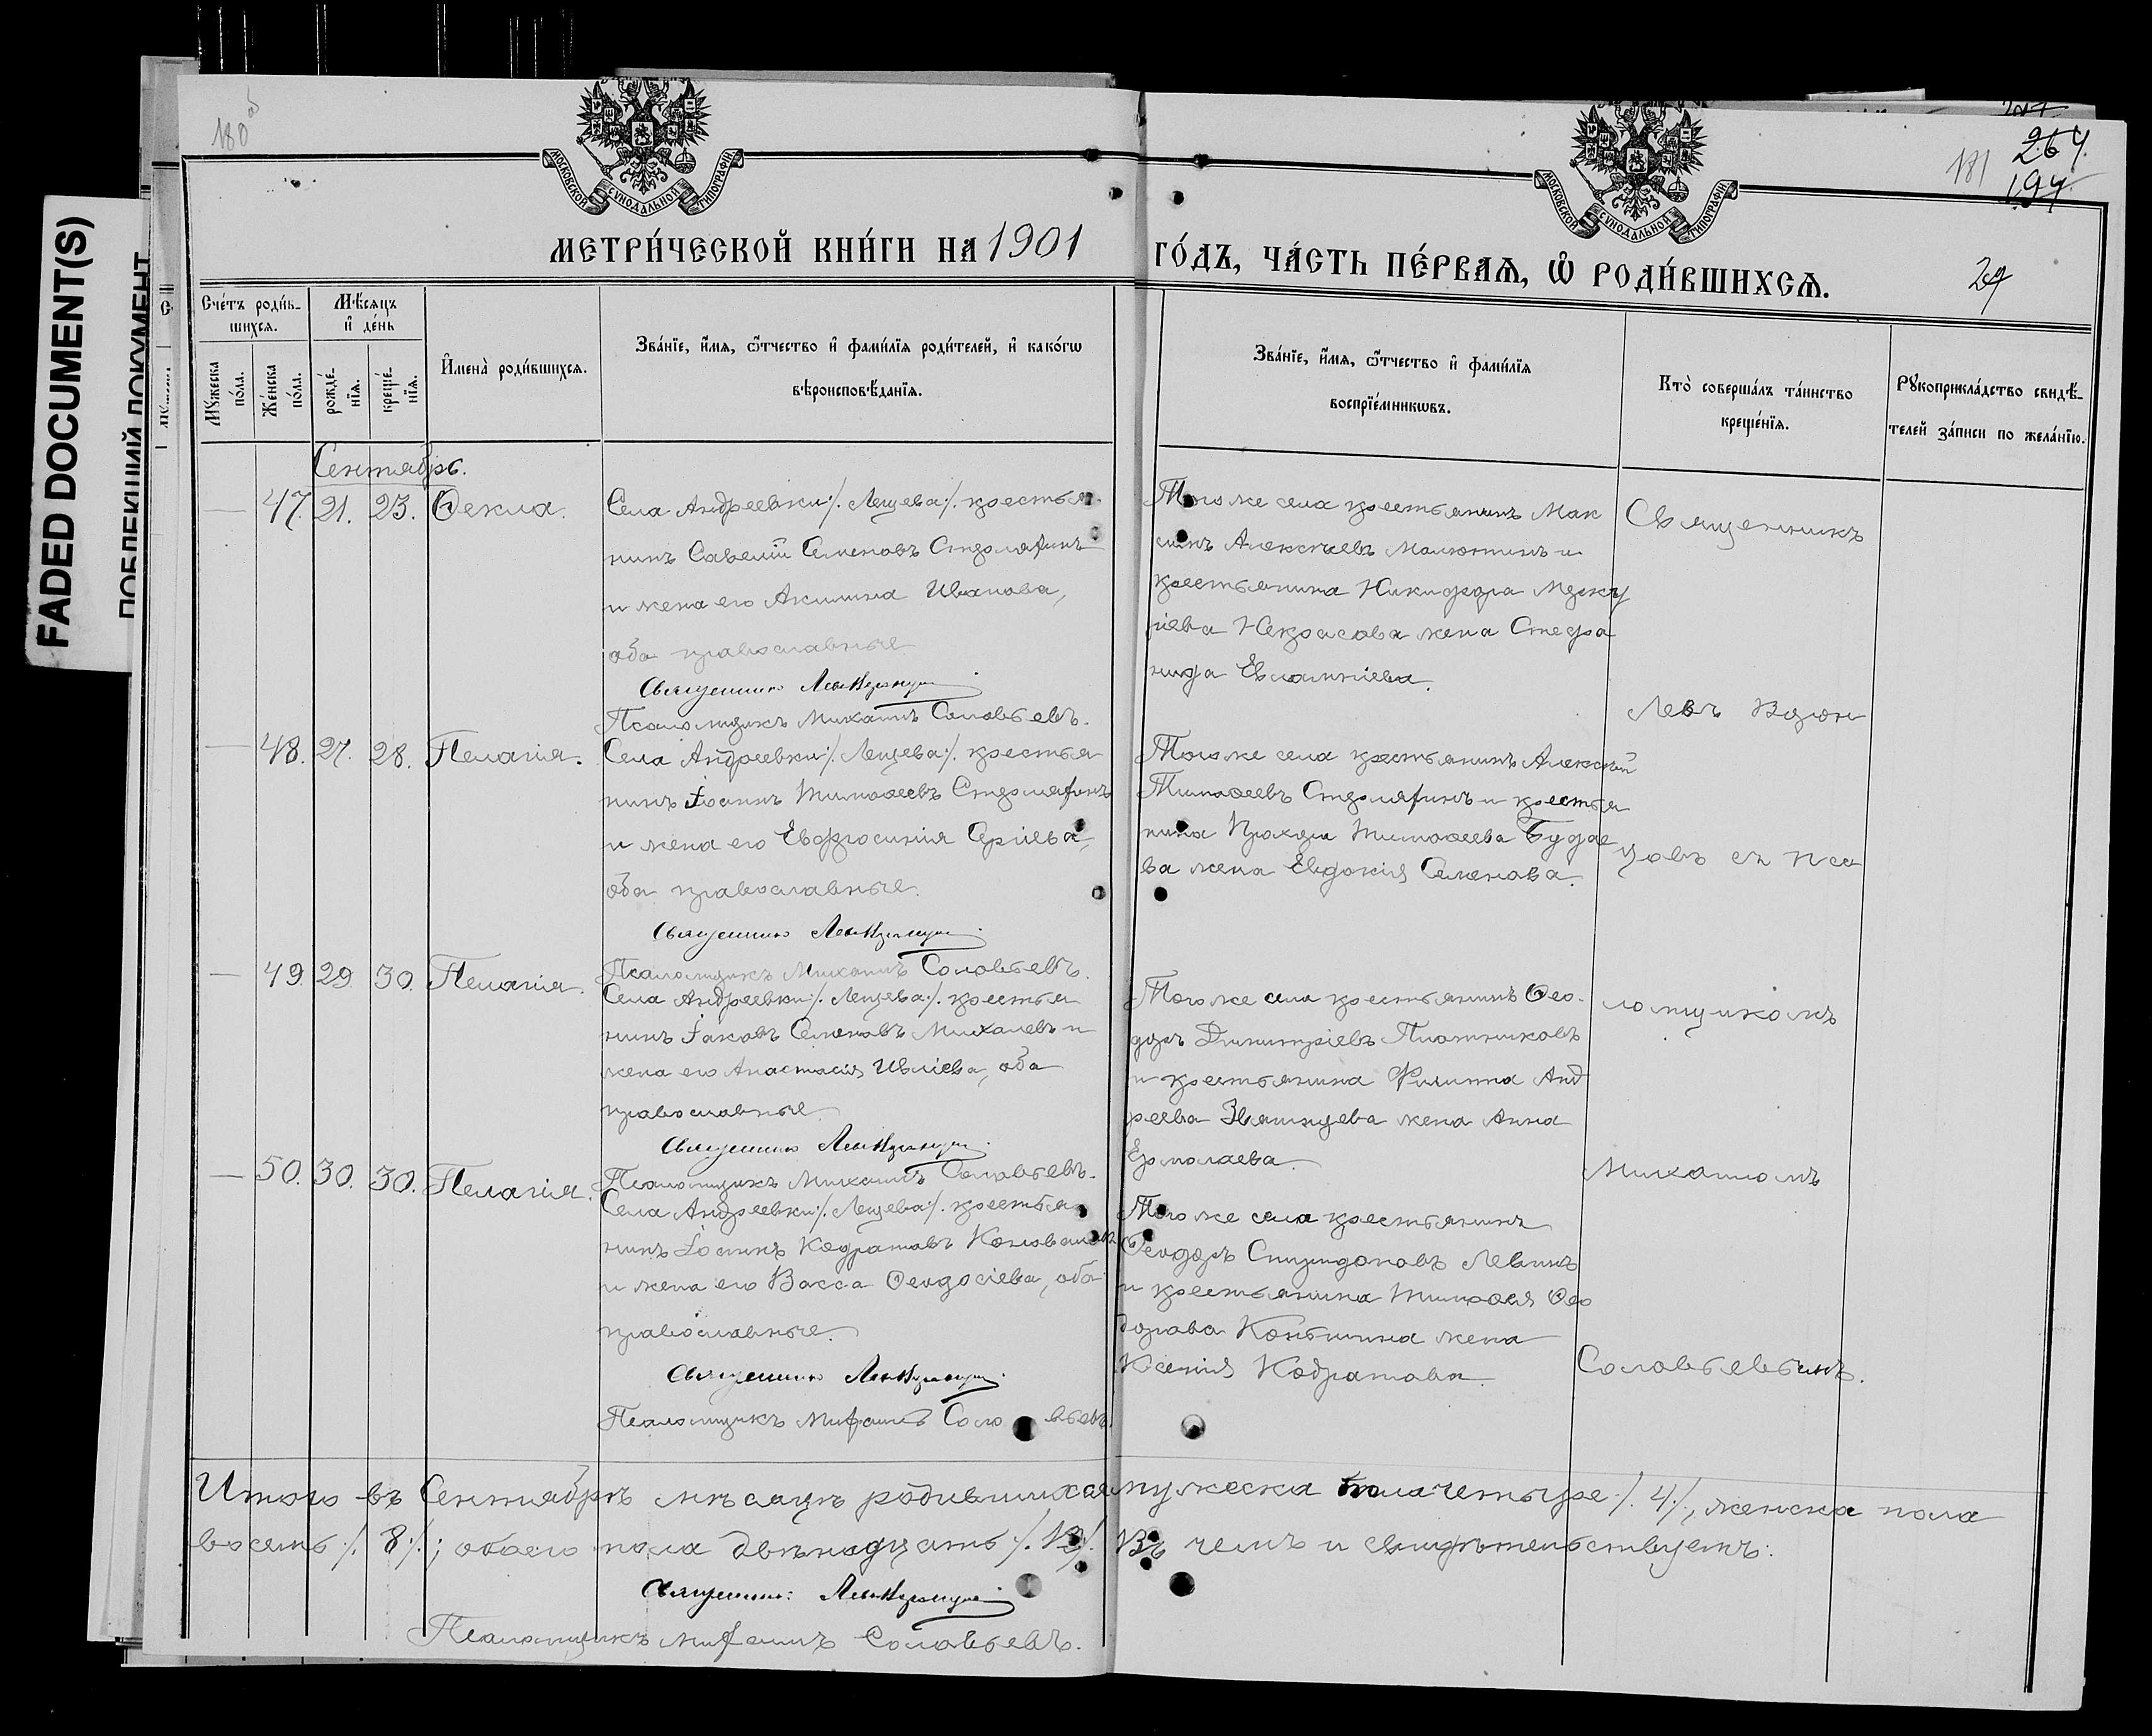 FADED DOCUMENT(S)
180 об
181
264.
194.
29
МОСКОВСКОЙ СУНОДАЛЬНОЙ ТИПОГРАФІИ.
МОСКОВСКОЙ СУНОДАЛЬНОЙ ТИПОГРАФІИ.
МЕТРИ́ЧЕСКОЙ КНИ́ГИ НА 1901
ГО́ДЪ, ЧА́СТЬ ПЕ́РВАѦ, Ѡ҆ РОДИ́ВШИХСѦ.
Сче́тъ роди́в-
шихсѧ.
Мѣ́сѧцъ
и҆ де́нь
Мꙋ́жеска
по́ла.
Же́нска
по́ла.
рожде́-
нїѧ.
креще́-
нїѧ.
И҆мена̀ роди́вшихсѧ.
Зва́нїе, и҆́мѧ, ѻ҆́тчество и҆ фами́лїѧ роди́телей, и҆ како́гѡ
вѣроисповѣ́данїѧ.
Зва́нїе, и҆́мѧ, ѻ҆́тчество и҆ фами́лїѧ
воспрїе́мникѡвъ.
Кто̀ соверша́лъ та́инство
креще́нїѧ.
Рꙋкоприкла́дство свидѣ́-
телей за́писи по жела́нїю.
Сентябрь.
— 47. 21. 23. Ѳекла.
Села Андреевки /. Лещева /. крестья
нинъ Савелій Семеновъ Стролягинъ
и жена его Акилина Иванова,
оба православные
Священникъ
Псаломщикъ Михаилъ Соловьевъ.
Того же села крестьянинъ Мак
симъ Алексѣевъ Малютинъ и
крестьянина Никифора Мерку
ріева Некрасова жена Стефа
нида Евлампіева.
— 48. 27. 28. Пелагія.
Села Андреевки /. Лещева /. крестья
нинъ Іоаннъ Тимоѳеевъ Стролягинъ
и жена его Евфросинія Сергіева,
оба православные.
Священникъ
Псаломщикъ Михаилъ Соловьевъ.
Того же села крестьянинъ Алексѣй
Тимоѳеевъ Стролягинъ и крестья
нина Прохора Тимоѳеева Будае
ва жена Евдокія Семенова.
— 49 29 30. Пелагія.
Села Андреевки /. Лещева /. крестья
нинъ Іаковъ Семеновъ Михалевъ и
жена его Анастасія Ивліева, оба
православные
Священникъ
Псаломщикъ Михаилъ Соловьевъ.
Того же села крестьянинъ Ѳео-
доръ Димитріевъ Плотниковъ
и крестьянина Филиппа Анд
реева жена Анна
Ермолаева.
— 50. 30. 30. Пелагія.
Села Андреевки /. Лещева /. крестья
нинъ Іоаннъ Кодратовъ Коноваловъ
и жена его Васса Ѳеодосіева, оба
православные.
Священникъ
Псаломщикъ Михаилъ Соловьевъ.
Того же села крестьянинъ
Ѳеодоръ Спиридоновъ Левинъ
и крестьянина Тимоѳея Ѳео
дорова Коньшина жена
Ксенія Кодратова.
Священникъ
Левъ
цовъ съ пса
ломщикомъ
Михаиломъ
Соловьевымъ.
Итого въ Сентябрѣ мѣсяцѣ родившихся мужеска пола четыре /. 4 /., женска пола
восемь /. 8 /.; обоего пола двѣнадцать /. 12 /. Въ чемъ и свидѣтельствуемъ:
Священникъ:
Псаломщикъ Михаилъ Соловьевъ.